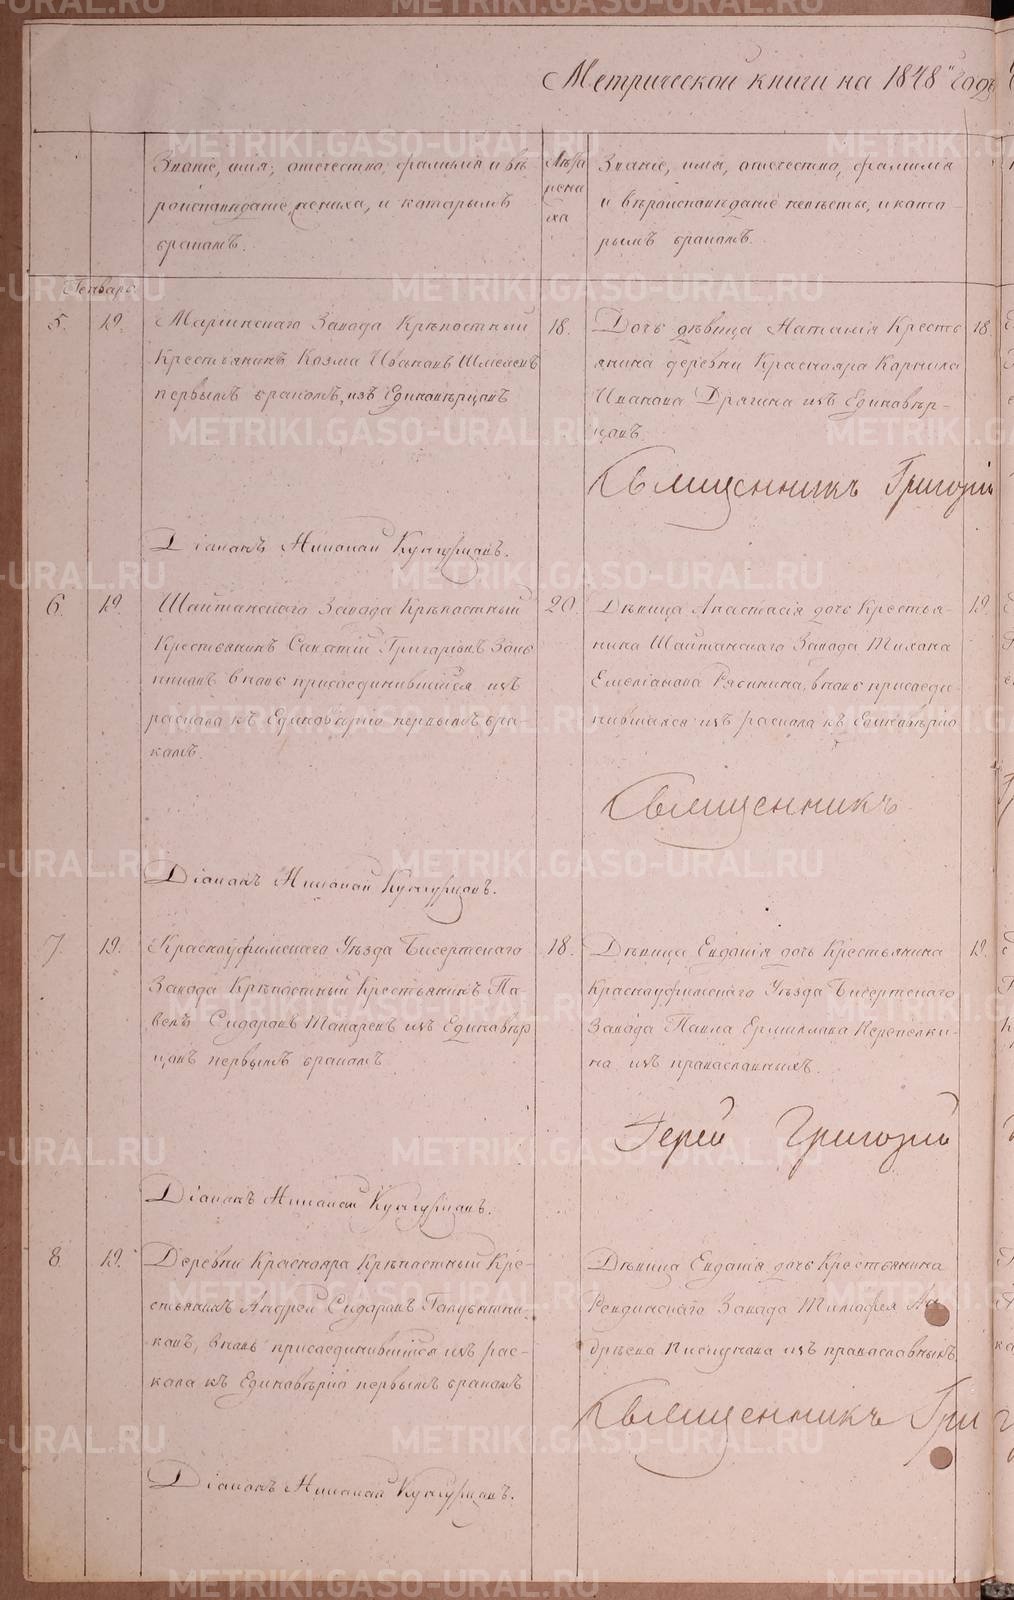 Метрической книги на 1848 годъ
Званіе, имя, отечество, фамилія и вѣ-
роисповѣданіе жениха, и которымъ
бракомъ.
Лѣта
жени
ха
Званіе, имя, отечество, фамилія
и вѣроисповѣданіе невѣсты, и кото-
рымъ бракомъ.
Генваря
5. 19. Маріинскаго Завода Крѣпостный
Крестьянинъ Козма Ивановъ
первымъ бракомъ, изъ Единовѣрцовъ
18. Дочь дѣвица Наталія Кресть
янина деревни Краснояра Корнила
Иванова Дрягина изъ Единовѣр-
цовъ
18.
Священникъ Григорій
Діаконъ Николай Кунгурцовъ.
6. 19. Шайтанскаго Завода Крѣпостный
Крестьянинъ Григорьевъ
вновь присоединившійся изъ
раскола къ Единовѣрію первымъ бра-
комъ.
20. Дѣвица Анастасія дочь Крестья-
нина Шайтанскаго Завода Тихона
Емеліанова вновь присоеди-
нившаяся изъ раскола къ Единовѣрію
19.
Священникъ
Діаконъ Николай Кунгурцовъ.
7 19. Красноуфимскаго Уѣзда Бисертскаго
Завода Крѣпостный Крестьянинъ Па-
велъ Сидоровъ Токаревъ изъ Единовѣр
цовъ первымъ бракомъ
18. Дѣвица Евдокія дочь Крестьянина
Красноуфимскаго Уѣзда Бисертскаго
Завода Павла Ермиллова Перепелки-
на изъ православныхъ.
19.
Іерей Григорій
Діаконъ Николай Кунгурцовъ.
8. 19. Деревни Краснояра Крѣпостный Кре-
стьянинъ Андрей Сидоровъ
вновь присоединившійся изъ рас-
кола къ Единовѣрію первымъ бракомъ
Дѣвица Евдокія дочь Крестьянина
Ревдинскаго Завода Тимофея Ан
дрѣева изъ православныхъ
Священникъ Гри
Діаконъ Николай Кунгурцовъ.
METRIKI.GASO-URAL.RU